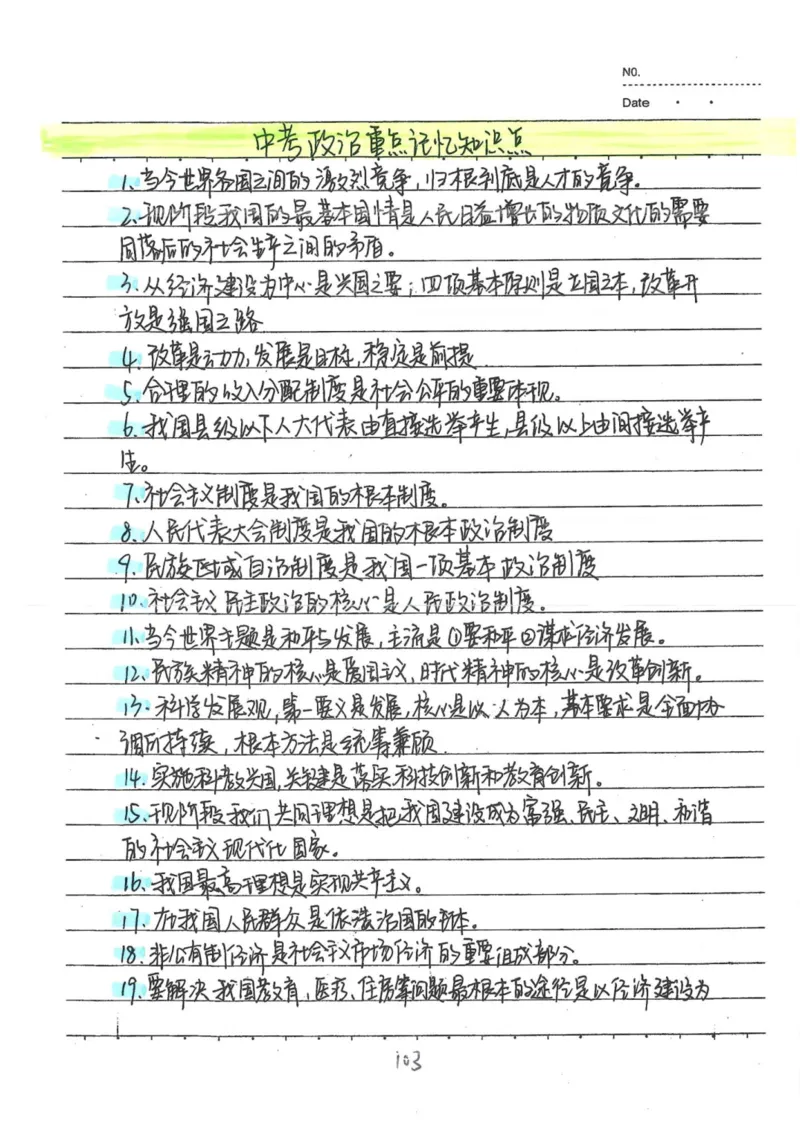 NO.
Date
中考政治重点记忆知识点
1、当今世界各国之间的激烈竞争，归根到底是人才的竞争。
2、现阶段我国的最基本国情是人民日益增长的物质文化的需要
同落后的社会生产之间的矛盾。
3、从经济建设为中心是兴国之要；四项基本原则是立国之本，改革开
放是强国之路
4、改革是动力，发展是目标，稳定是前提
5、合理的收入分配制度是社会公平的重要体现。
6、我国县级以下人大代表由直接选举产生，县级以上由间接选举产
生。
7、社会主义制度是我国的根本制度。
8、人民代表大会制度是我国的根本政治制度
9、民族区域自治制度是我国一项基本政治制度
10、社会主义民主政治的核心是人民政治制度。
11、当今世界主题是和平与发展，主流是①要和平②谋求经济发展。
12、民族精神的核心是爱国主义，时代精神的核心是改革创新。
13、科学发展观，第一要义是发展，核心是以人为本，基本要求是全面协
调可持续，根本方法是统筹兼顾
14、实施科教兴国，关键是落实科技创新和教育创新。
15、现阶段我们共同理想是把我国建设成为富强、民主、文明、和谐
的社会主义现代化国家。
16、我国最高理想是实现共产主义。
17、在我国人民群众是依法治国的主体。
18、非公有制经济是社会主义市场经济的重要组成部分。
19、要解决我国教育，医疗、住房等问题最根本的途径是以经济建设为
103